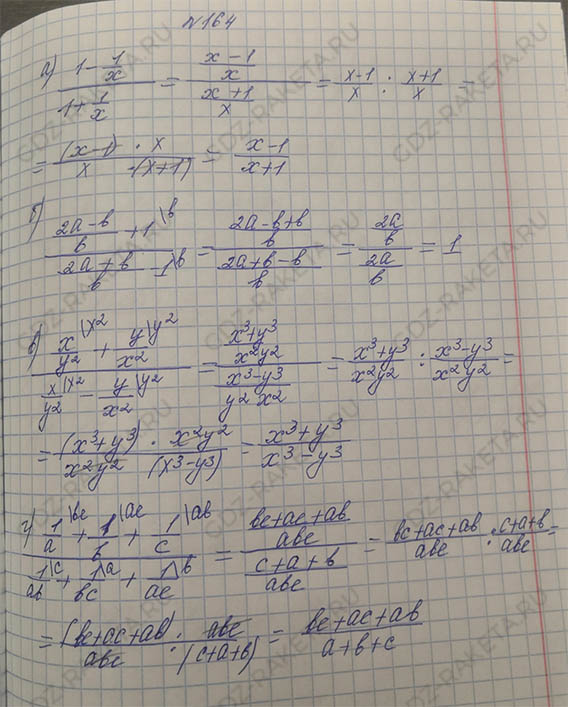 №164
а) (1 - 1/x)/(1 + 1/x) = ((x-1)/x)/((x+1)/x) = (x-1)/x : (x+1)/x =
= ((x-1) · x)/(x · (x+1)) = (x-1)/(x+1)
б) ((2a-b)/b + 1\b)/((2a+b)/b - 1\b) = ((2a-b+b)/b)/((2a+b-b)/b) = (2a/b)/(2a/b) = 1
в) (x/y2\x2 + y/x2\y2)/(x/y2\x2 - y/x2\y2) = ((x³+y³)/(x²y²))/((x³-y³)/(y²x²)) = (x³+y³)/(x²y²) : (x³-y³)/(x²y²) =
= ((x³+y³) · x²y²)/(x²y² (x³-y³)) = (x³+y³)/(x³-y³)
г) (1/a\bc + 1/b\ac + 1/c\ab)/(1/ab\c + 1/bc\a + 1/ac\b) = ((bc+ac+ab)/abc)/((c+a+b)/abc) = (bc+ac+ab)/abc : (c+a+b)/abc =
= (bc+ac+ab)/abc : abc/(c+a+b) = (bc+ac+ab)/(a+b+c)
GDZ-RAKETA.RU